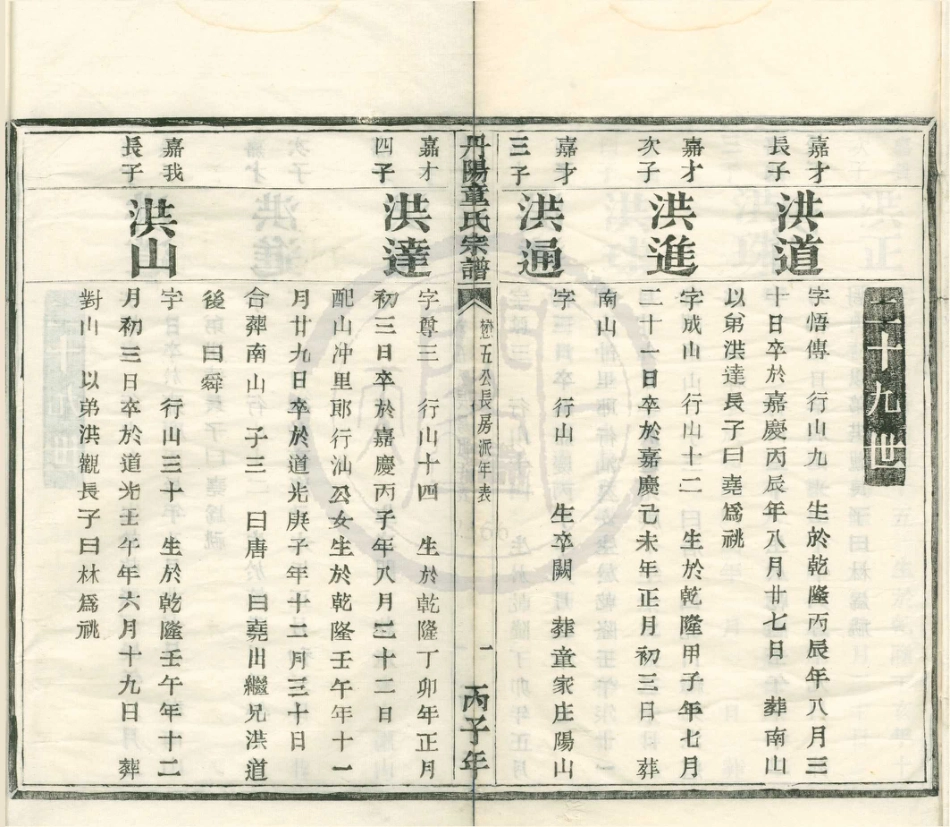 二十九世
嘉才
長子
洪道
字悟傳行山九 生於乾隆丙辰年八月三
十日卒於嘉慶丙辰年八月廿七日 葬南山
以弟洪達長子曰堯爲祧
嘉才
次子
洪進
字成山行山十二 生於乾隆甲子年七月
二十八日卒於嘉慶己未年正月初三日 葬
南山
嘉才
三子
洪通
字 行山 生卒闕 葬童家庄陽山
丹陽童氏宗譜
五公長房派年表
一
丙子年
嘉才
四子
洪達
字尊三 行山十四 生於乾隆丁卯年正月
初三日卒於嘉慶丙子年八月二十二日
配山冲里耶行汕公女生於乾隆壬午年十一
月廿九日卒於道光庚子年十二月三十日
合葬南山 子三 曰唐曰堯出繼兄洪道
後 曰舜
嘉我
長子
洪山
字 行山三十 生於乾隆壬午年十二
月初三日卒於道光壬午年六月十九日 葬
對山 以弟洪觀長子曰林爲祧